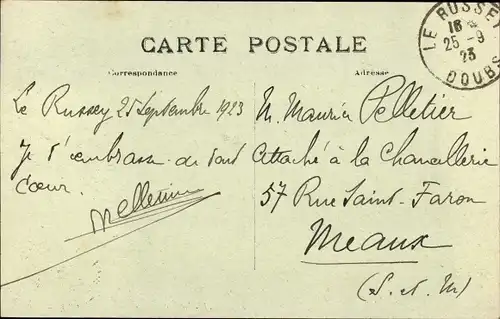 CARTE POSTALE
Correspondance
Adresse
LE RUSSEY
18
25-9
23
DOUBS
Le Russey 25 Septembre 1923
Je t'embrasse de tout
cœur.
M. Maurice Pelletier
Attaché à la Chancellerie
57 Rue Saint-Faron
Meaux
(S. et M)